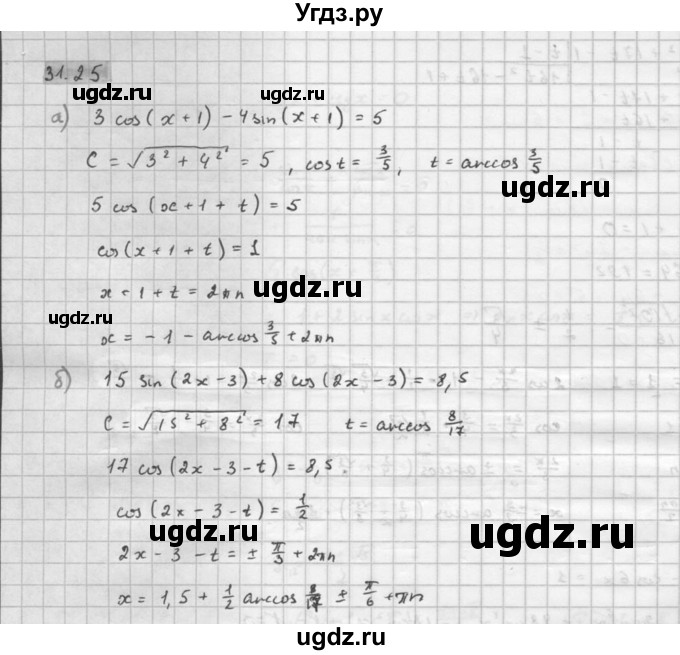 Угдз.ру
31.25
ugdz.ru
ugdz.ru
ugdz.ru
а) 3 cos(x+1) − 4 sin(x+1) = 5
C = √3² + 4² = 5, cos t = 3/5, t = arccos 3/5
ugdz.ru
5 cos (x+1+t) = 5
cos(x+1+t) = 1
x + 1 + t = 2πn
ugdz.ru
ugdz.ru
x = −1 − arccos 3/5 + 2πn
б) 15 sin(2x−3) + 8 cos(2x−3) = 8,5
C = √15² + 8² = 17 t = arccos 8/17
17 cos(2x−3−t) = 8,5.
cos(2x−3−t) = 1/2
ugdz.ru
ugdz.ru
2x − 3 − t = ± π/3 + 2πn
x = 1,5 + 1/2 arccos 8/17 ± π/6 + πn
ugdz.ru